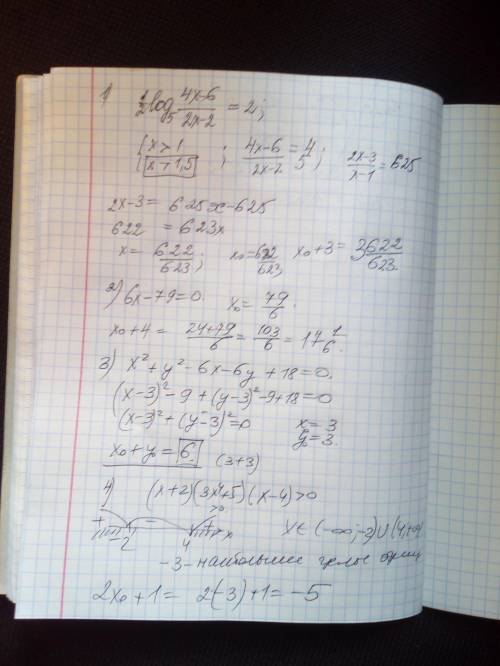 1) 1/2 log₅ (4x-6)/(2x-2) = 2;
{ x > 1 { x > 1,5 ; (4x-6)/(2x-2) = 5⁴ ; (2x-3)/(x-1) = 625
2x-3 = 625x-625
622 = 623x
x = 622/623; x₀ = 622/623; x₀+3 = 3 622/623.
2) 6x-79=0. x₀ = 79/6
x₀+4 = (24+79)/6 = 103/6 = 17 1/6.
3) x²+y²-6x-6y+18=0.
(x-3)²-9+(y-3)²-9+18=0
(x-3)²+(y-3)²=0 x=3
y=3.
x₀+y₀=6. (3+3)
4) (x+2)(3x⁴+5)(x-4)>0
>0
+ - + x x∈(-∞;-2)∪(4;+∞)
-2 4
-3- наибольшее целое отриц
2x₀+1= 2(-3)+1=-5